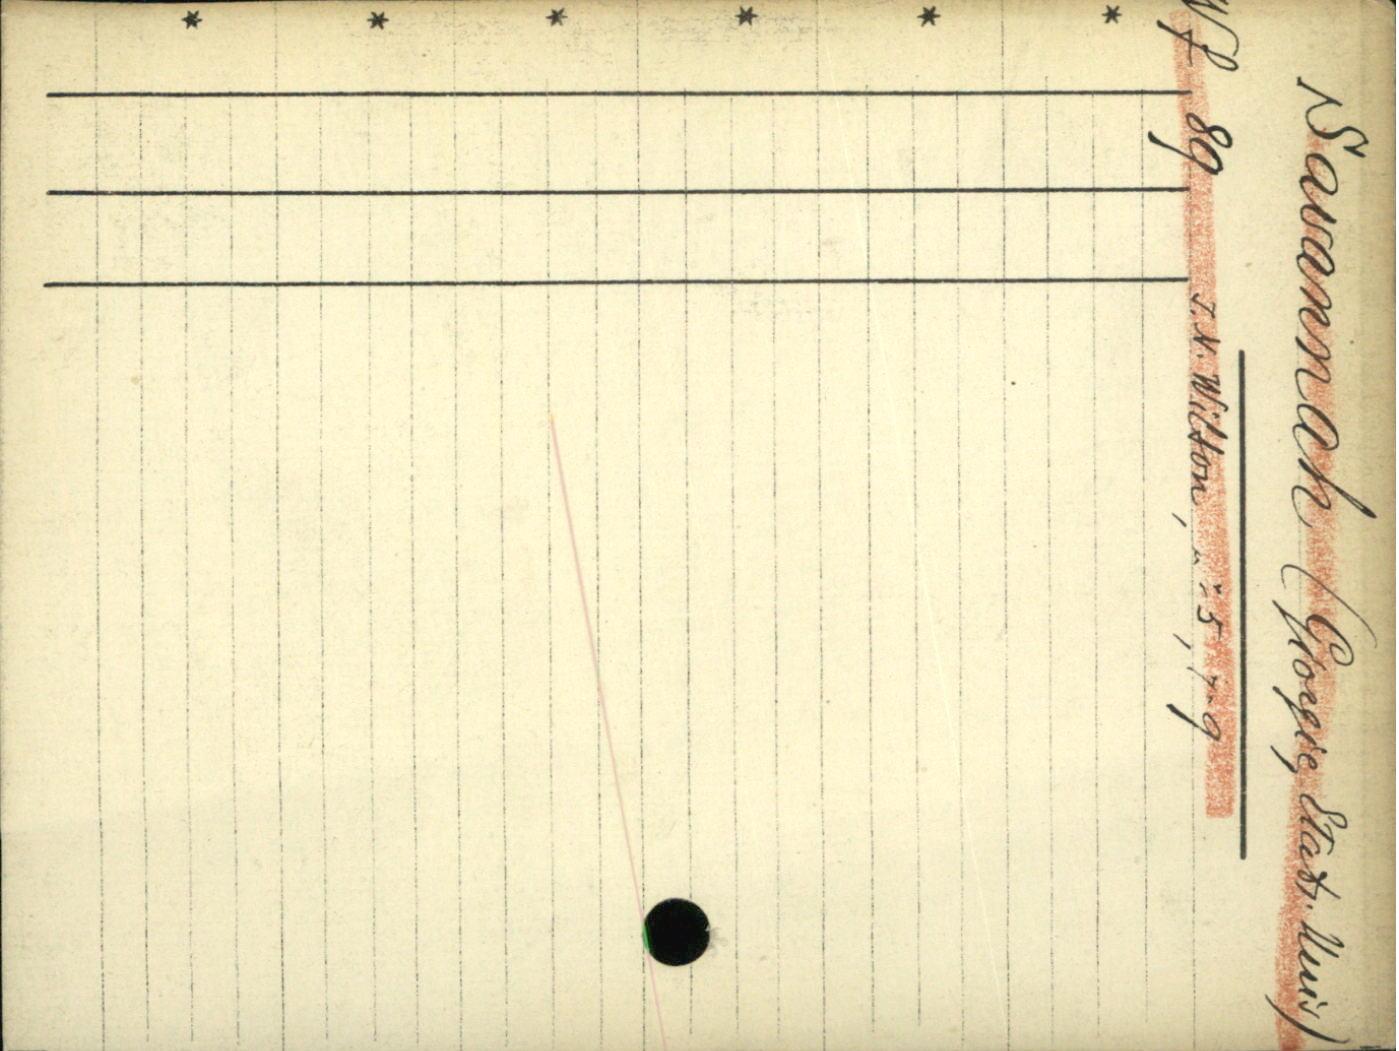 Savannah (Giorgie, Etats. Unis)
Wf 89 J. N. Wilson, n° 5, 7-9